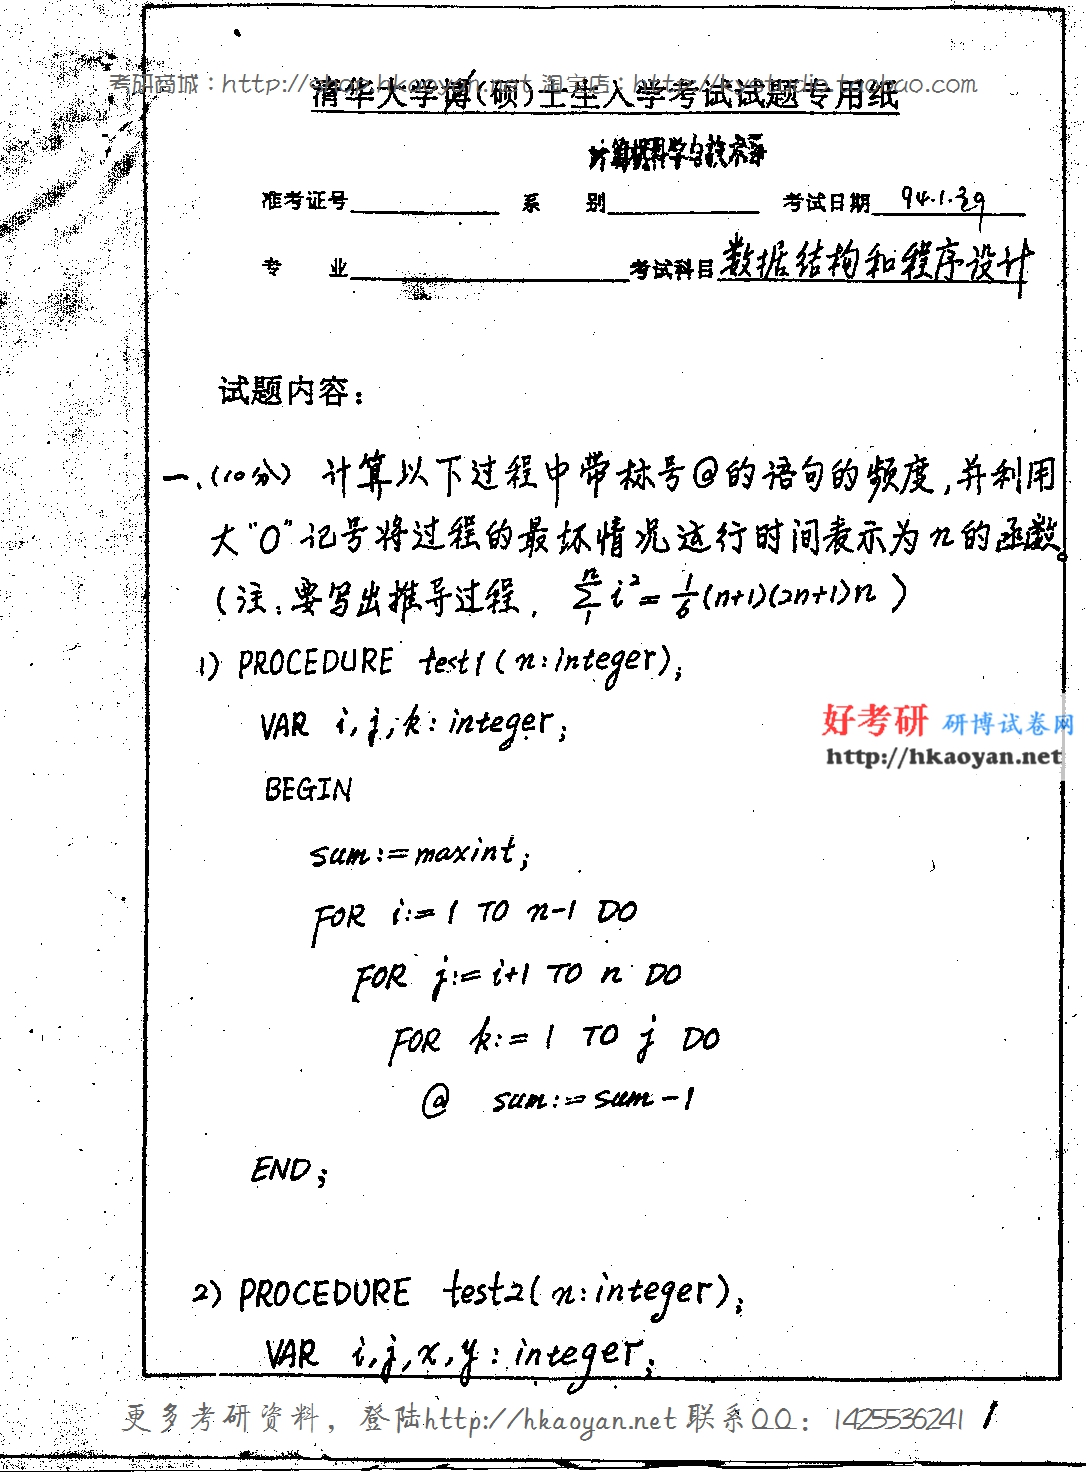 考研商城：http://shop.hkaoyan.net 淘宝店：http://kystudio.taobao.com
清华大学博(硕)士生入学考试试题专用纸
计算机科学与技术系
准考证号 系 别 考试日期 94.1.29
专 业 考试科目 数据结构和程序设计
试题内容：
一、(10分) 计算以下过程中带标号@的语句的频度,并利用
大"O"记号将过程的最坏情况运行时间表示为n的函数。
(注:要写出推导过程, n∑1 i²=1/6(n+1)(2n+1)n )
1) PROCEDURE test1(n:integer);
VAR i,j,k:integer;
好考研 研博试卷网
http://hkaoyan.net
BEGIN
sum:=maxint;
FOR i:=1 TO n-1 DO
FOR j:=i+1 TO n DO
FOR k:=1 TO j DO
@ sum:=sum-1
END;
2) PROCEDURE test2(n:integer);
VAR i,j,x,y:integer;
更多考研资料，登陆http://hkaoyan.net 联系QQ：1425536241 1